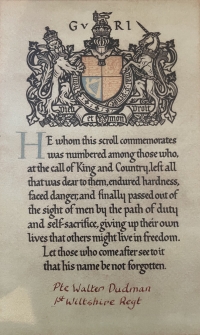 G V R I
DIEU ET MON DROIT
HE whom this scroll commemorates
was numbered among those who,
at the call of King and Country, left all
that was dear to them, endured hardness,
faced danger, and finally passed out of
the sight of men by the path of duty
and self-sacrifice, giving up their own
lives that others might live in freedom.
Let those who come after see to it
that his name be not forgotten.
Pte Walter Dudman
1st Wiltshire Regt